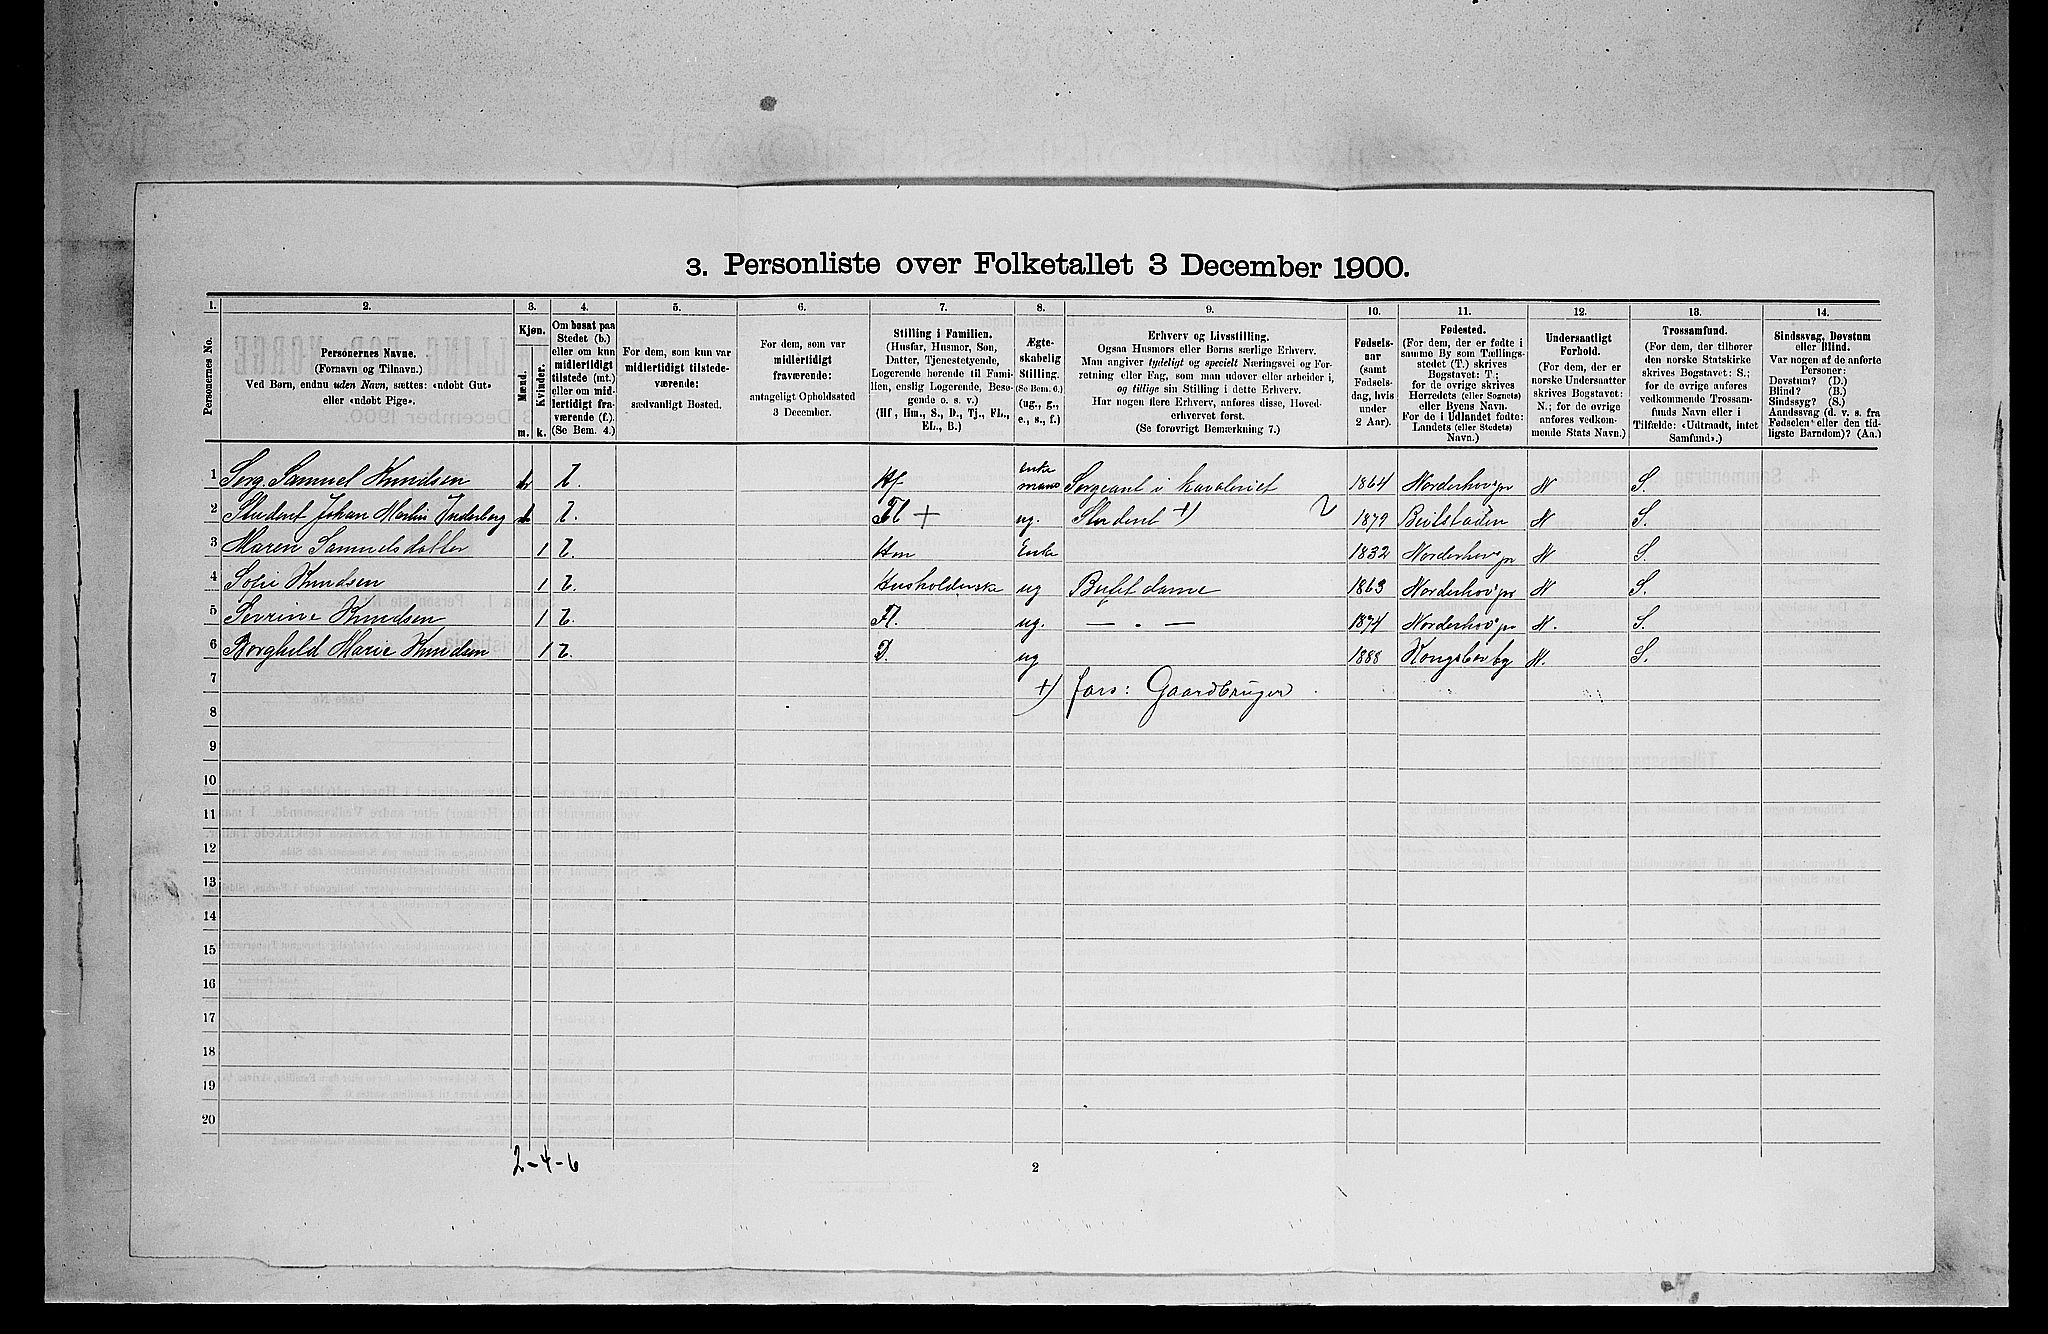 3. Personliste over Folketallet 3 December 1900.
1. 2. 3. 4. 5. 6. 7. 8. 9. 10. 11. 12. 13. 14.
Personernes No.
Personernes Navne.
(Fornavn og Tilnavn.)
Ved Børn, endnu uden Navn, sættes: «udøbt Gut»
eller «udøbt Pige».
Kjøn.
Mænd.
Kvinder.
m. k.
Om bosat paa
Stedet (b.)
eller om kun
midlertidigt
tilstede (mt.)
eller om mid-
lertidigt fra-
værende (f.)
(Se Bem. 4.)
For dem, som kun var
midlertidigt tilstede-
værende:
sædvanligt Bosted.
For dem, som var
midlertidigt
fraværende:
antageligt Opholdssted
3 December.
Stilling i Familien.
(Husfar, Husmor, Søn,
Datter, Tjenestetyende,
Logerende hørende til Fami-
lien, enslig Logerende, Besø-
gende o. s. v.)
(Hf, Hm., S., D., Tj., FL.,
EL., B.)
Ægte-
skabelig
Stilling.
(Se Bem. 6.)
(ug., g.,
e., s., f.)
Erhverv og Livsstilling.
Ogsaa Husmors eller Børns særlige Erhverv.
Man angiver tydeligt og specielt Næringsvei og For-
retning eller Fag, som man udøver eller arbeider i,
og tillige sin Stilling i dette Erhverv.
Har nogen flere Erhverv, anføres disse, Hoved-
erhvervet først.
(Se forøvrigt Bemærkning 7.)
Fødsels-
aar
(samt
Fødsels-
dag, hvis
under
2 Aar).
Fødested.
(For dem, der er fødte i
samme By som Tællings-
stedet (T.) skrives
Bogstavet: T.;
for de øvrige skrives
Herredets (eller Sognets)
eller Byens Navn.
For de i Udlandet fødte:
Landets (eller Stedets)
Navn.)
Undersaatligt
Forhold.
(For dem, der er
norske Undersaatter
skrives Bogstavet:
N.; for de øvrige
anføres vedkom-
mende Stats Navn.)
Trossamfund.
(For dem, der tilhører
den norske Statskirke
skrives Bogstavet: S.;
for de øvrige anføres
vedkommende Trossam-
funds Navn eller i
Tilfælde: «Udtraadt, intet
Samfund».)
Sindssvag, Døvstum
eller Blind.
Var nogen af de anførte
Personer:
Døvstum? (D.)
Blind? (B.)
Sindssyg? (S.)
Aandssvag (d. v. s. fra
Fødselen eller den tid-
ligste Barndom)? (Aa.)
1 Serg. Samuel Knudsen Hf enke mand Sergeant i kavaleriet 1864 Norderhov pr N S.
2 Student Johan Martin Inderberg Fl + ug. Student +) 2 1879 Beitstaden N S.
3 Maren Samuelsdatter 1 Hm Enke 1832 Norderhov pr N S.
4 Sofie Knudsen 1 Husholderske ug Bufetdame 1863 Norderhov pr N S.
5 Sevrine Knudsen 1 Fl. ug. — „ — 1874 Norderhov pr N. S.
6 Borghild Marie Knudsen 1 D. ug 1888 Kongsberg by N. S.
7 +) fars: Gaardbruger
8
9
10
11
12
13
14
15
16
17
18
19
20
2-4-6
2